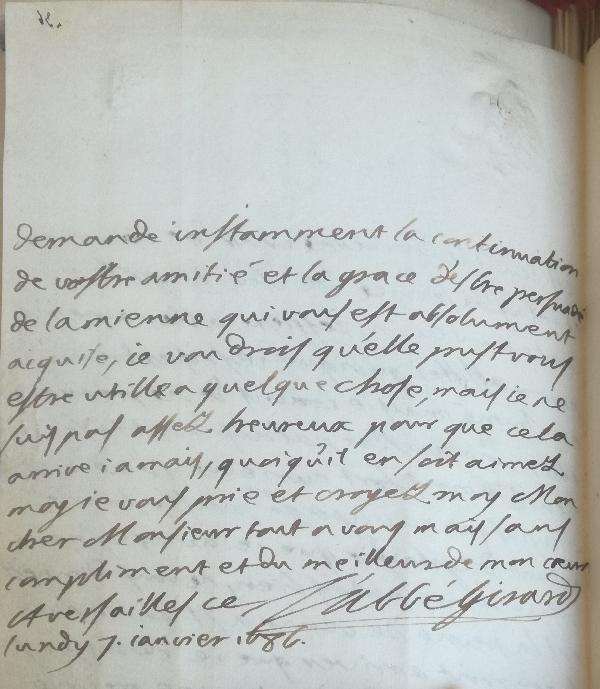 demande instamment la continuation
de vostre amitié et la grace d'estre persuadé
de la mienne qui vous est absolument
aiquise, ie voudrois qu'elle pust vous
estre utille a quelque chose, mais ie ne
suis pas assez heureux pour que cela
arrive iamais, quoiqu'il en soit aimez
moy ie vous prie et croyez moy Mon
cher Monsieur tout a vous mais sans
compliment et du meilleur de mon cœur
A versailles ce L'abbé Girard
lundy 7. ianvier 1686.